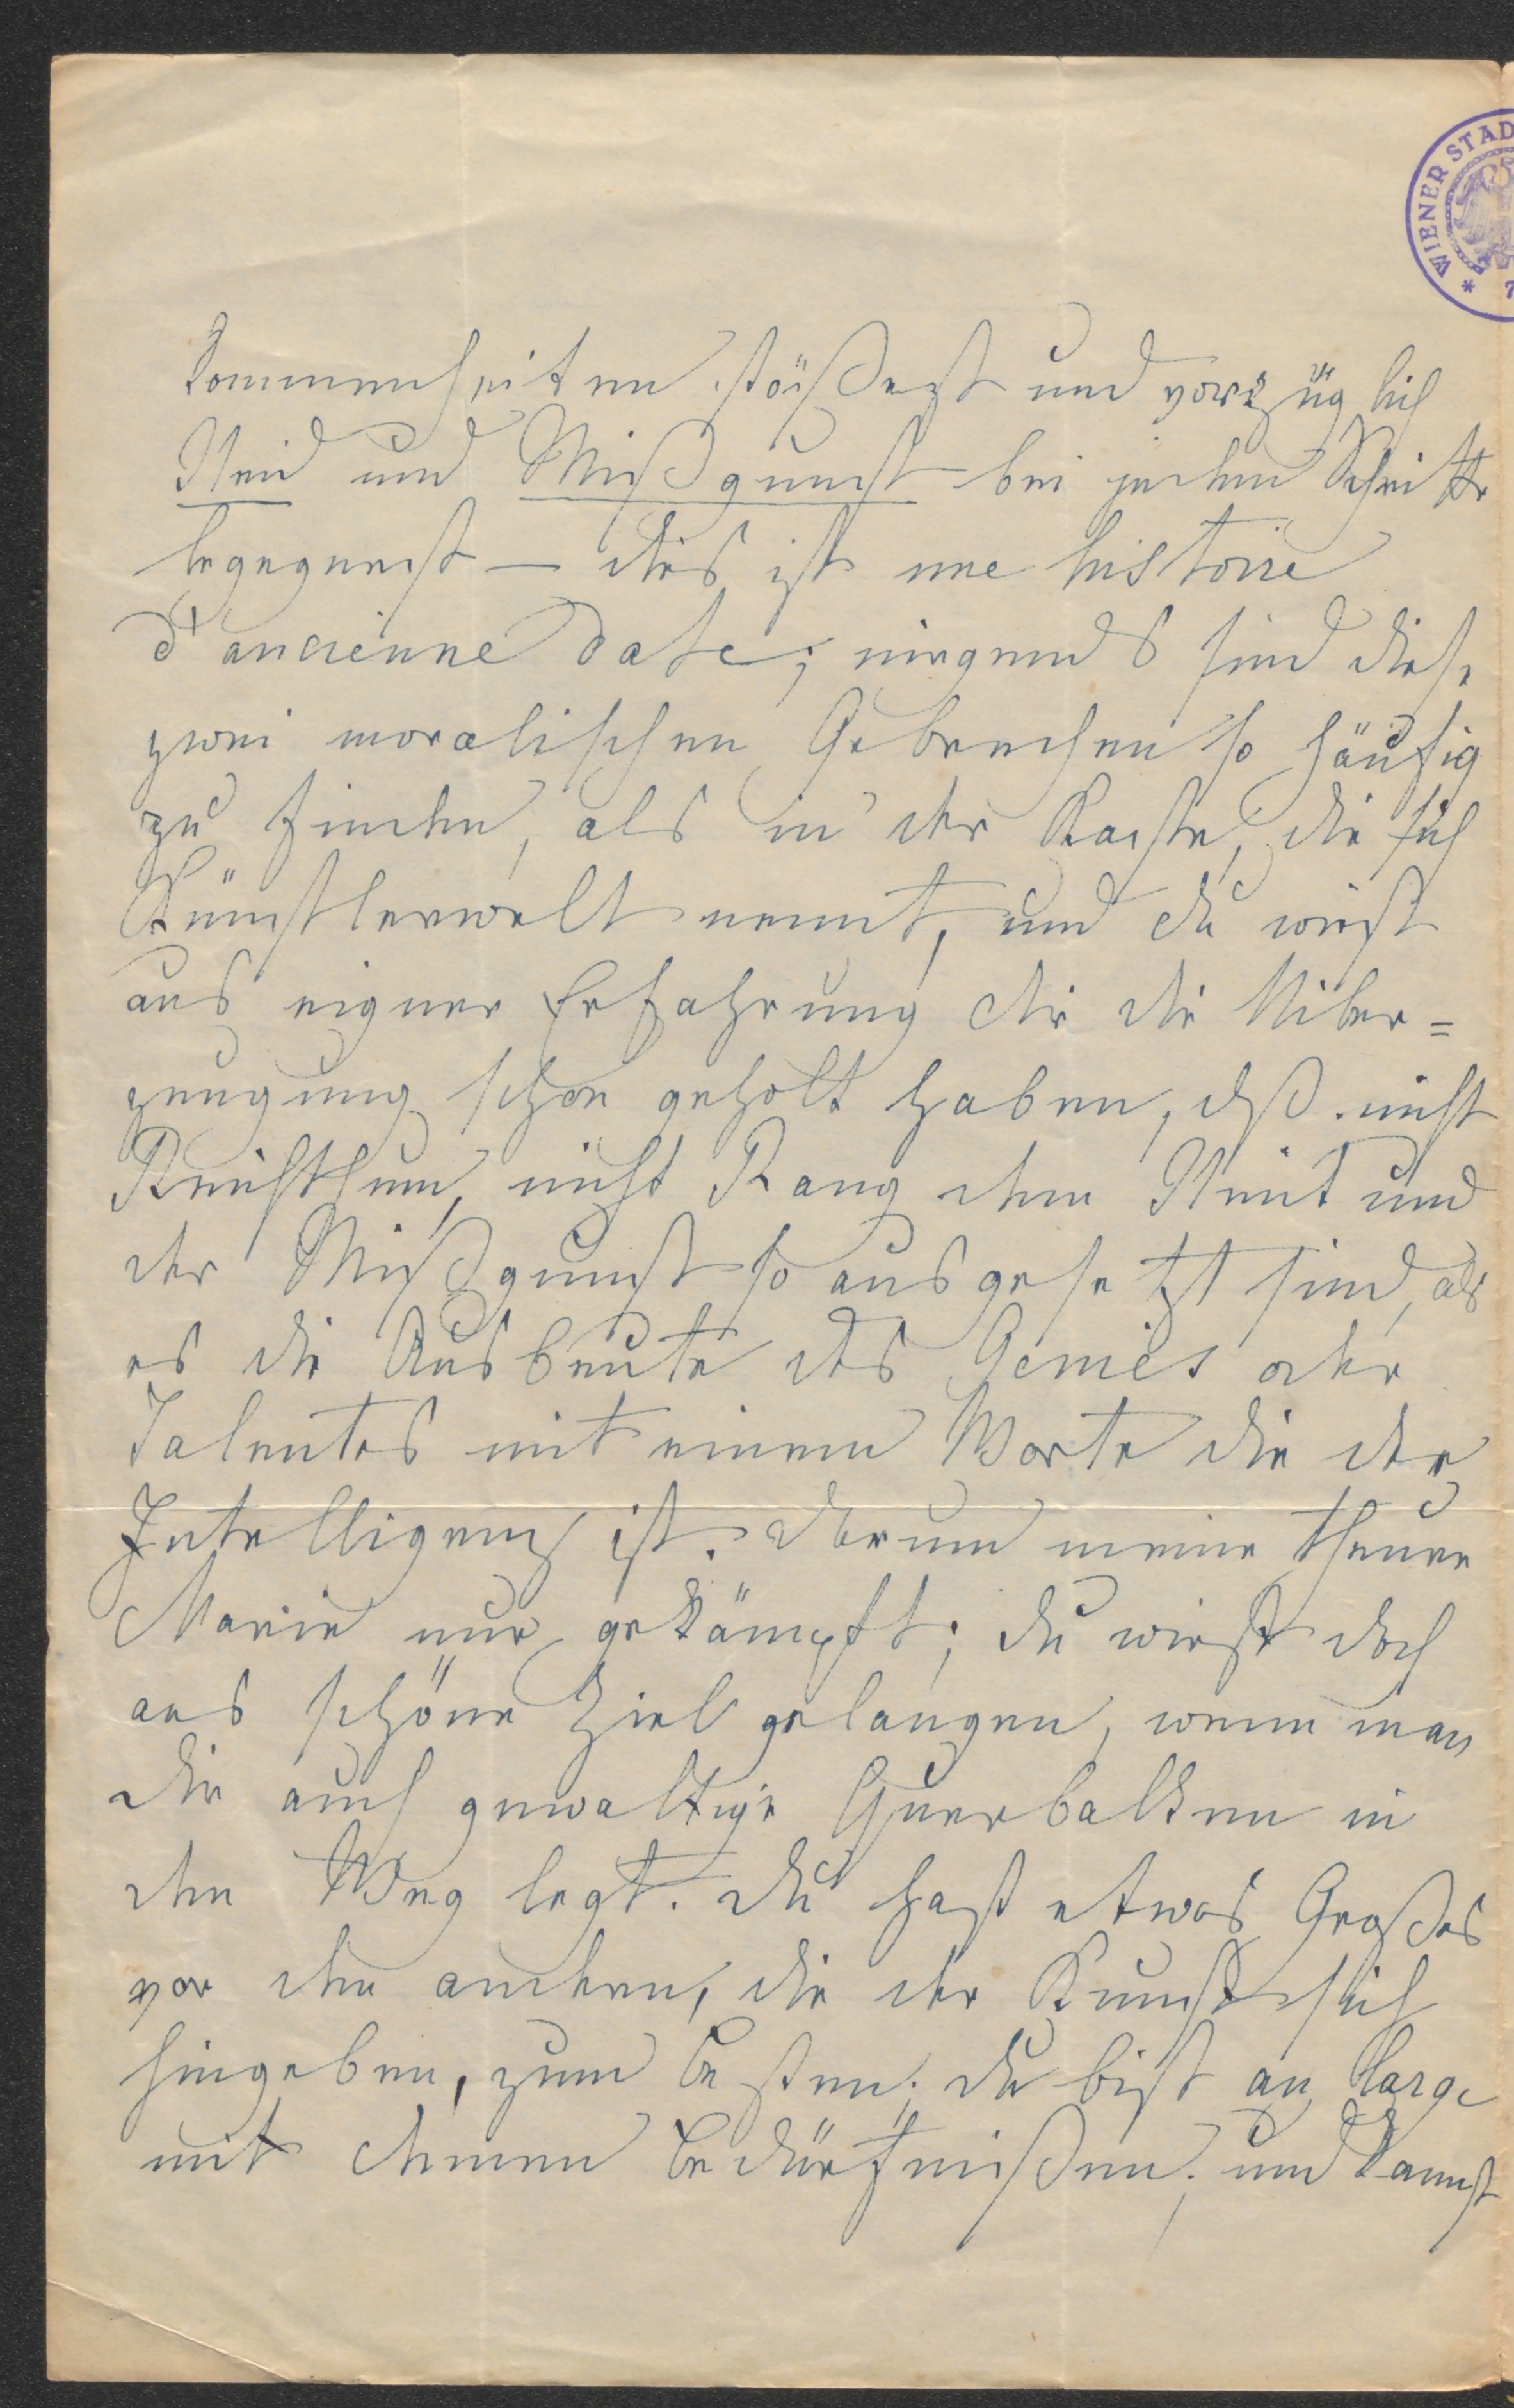 WIENER STAD
* 7
kommenheiten stößest und vorzüglich
Neid und Mißgunst bei jedem Schritte
begegnest — dies ist une histoire
d'ancienne date; nirgends sind diese
zwei moralischen Gebrechen so häufig
zu finden, als in der Kaste, die sich
Künstlerwelt nennt, und du wirst
aus eigner Erfahrung dir die Uiber=
zeugung schon geholt haben, dß nicht
Reichthum, nicht Rang dem Neid und
der Mißgunst so ausgesetzt sind, als
es die Ausbeute des Genies oder
Talentes mit einem Worte die der
Intelligenz ist. Darum meine theure
Marie nur gekämpft; du wirst doch
ans schöne Ziel gelangen, wenn man
dir auch gewaltige Querbalken in
den Weg legt. Du hast etwas Großes
vor den andern, die der Kunst sich
hingeben, zum besten; du bist au large
mit deinen Bedürfnißen; und kannst